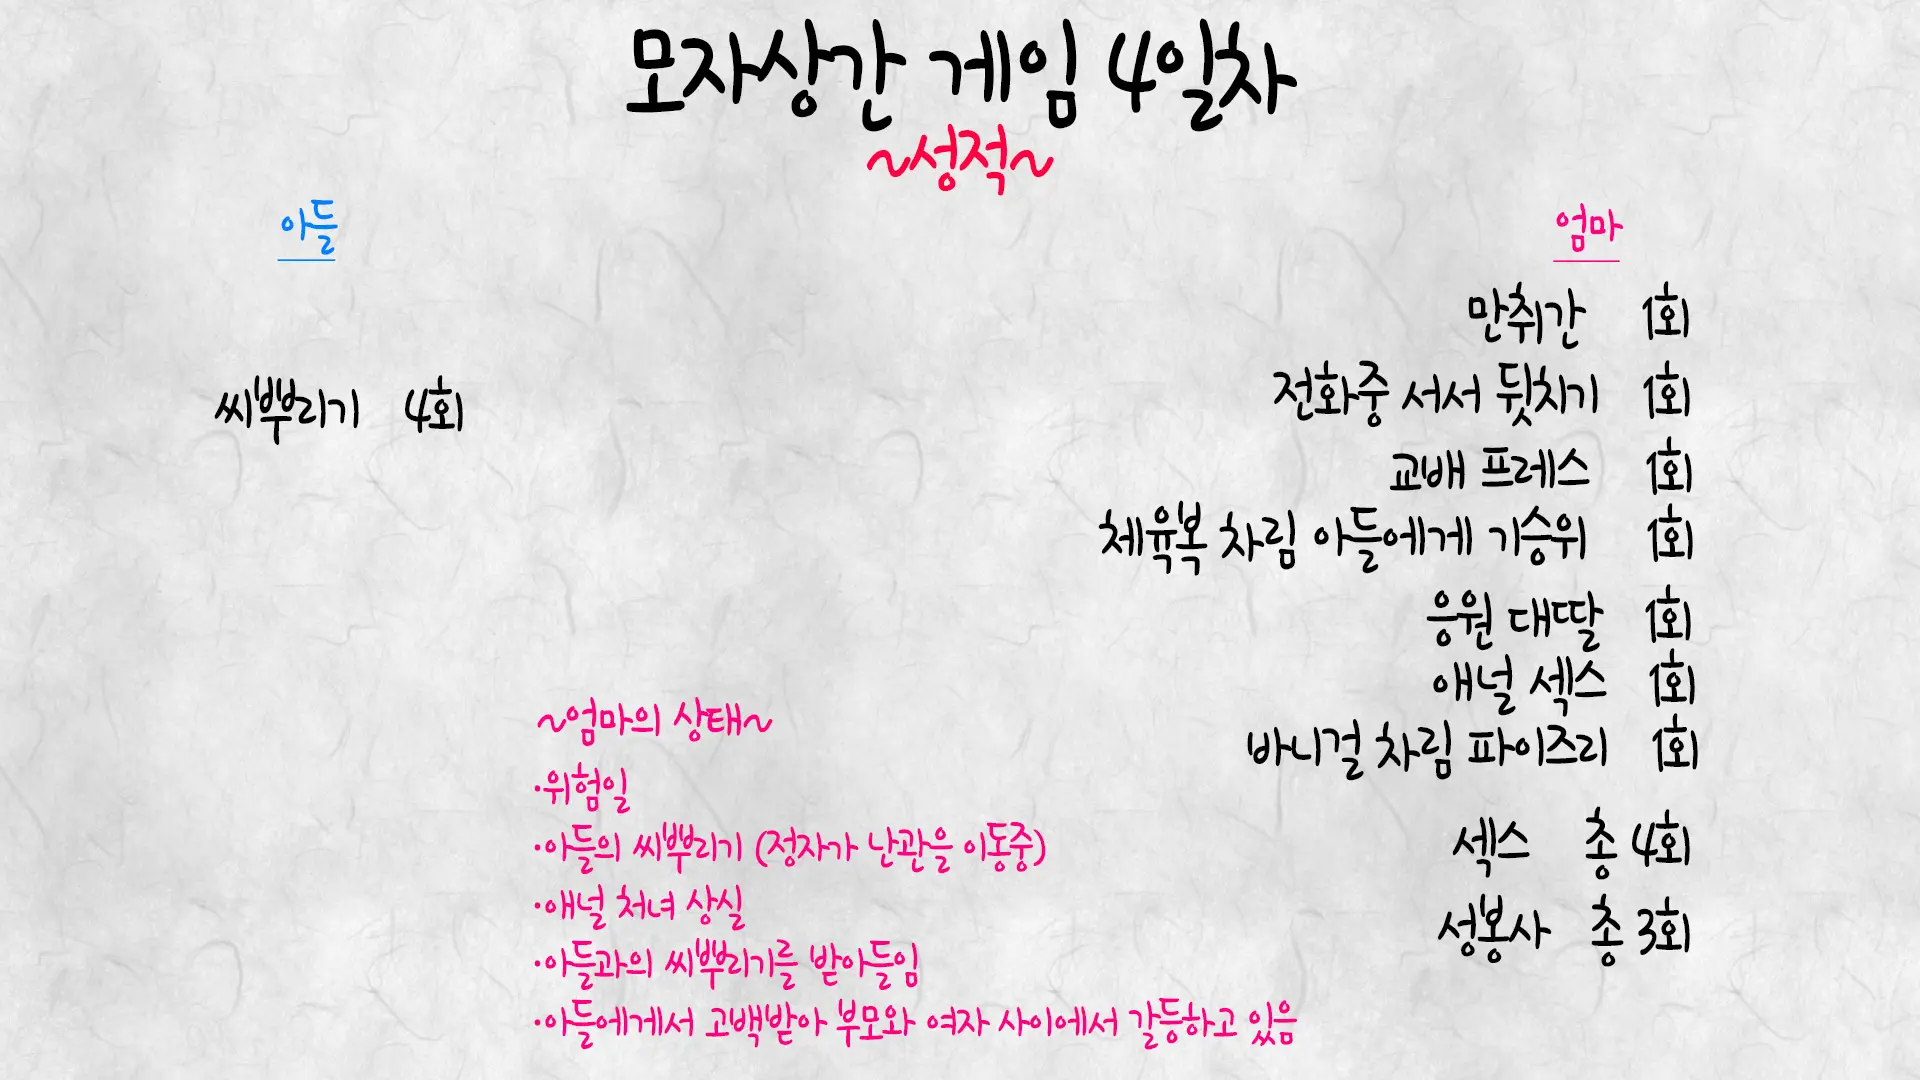 모자상간 게임 4일차
~성적~
아들
씨뿌리기 4회
엄마
만취간 1회
전화중 서서 뒷치기 1회
교배 프레스 1회
체육복 차림 아들에게 기승위 1회
응원 대딸 1회
애널 섹스 1회
바니걸 차림 파이즈리 1회
섹스 총 4회
성봉사 총 3회
~엄마의 상태~
·위험일
·아들의 씨뿌리기 (정자가 난관을 이동중)
·애널 처녀 상실
·아들과의 씨뿌리기를 받아들임
·아들에게서 고백받아 부모와 여자 사이에서 갈등하고 있음